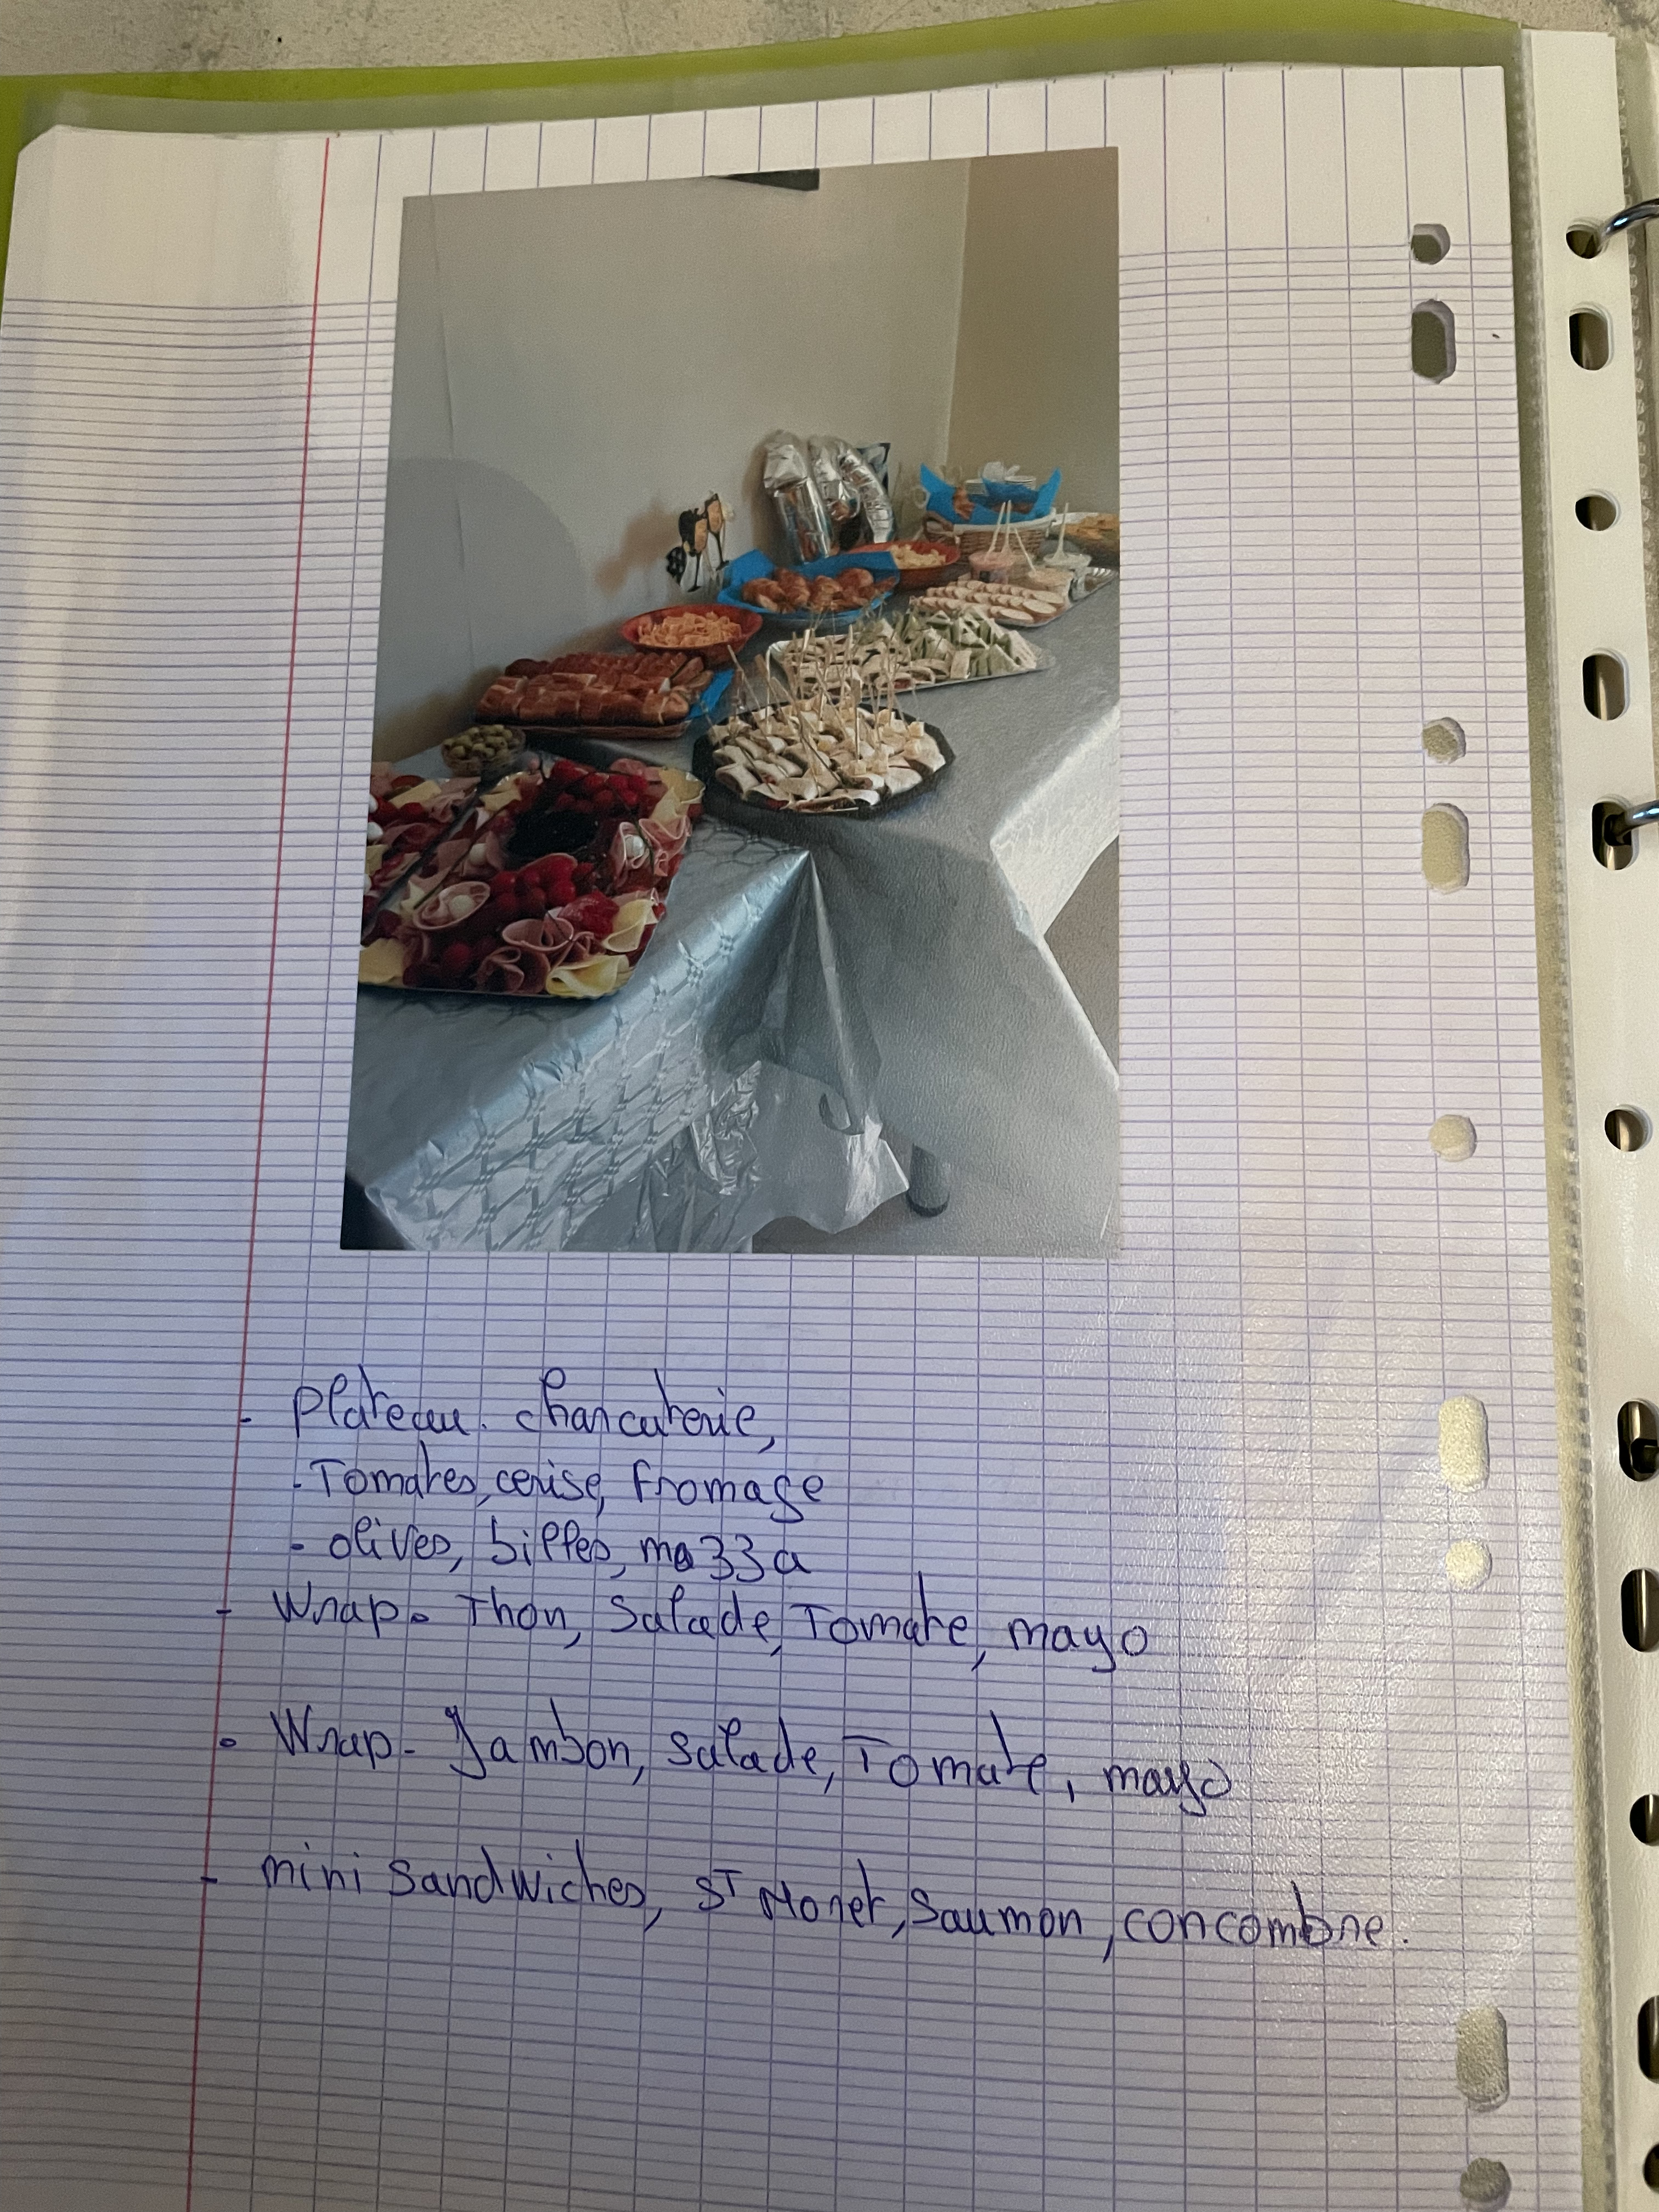 - Plateau. charcuterie,
- Tomates, cerise, fromage
- olives, billes, mozza
- Wrap - Thon, Salade, Tomate, mayo
- Wrap - Jambon, salade, Tomate, mayo
- mini sandwiches, ST Moret, Saumon, concombre.